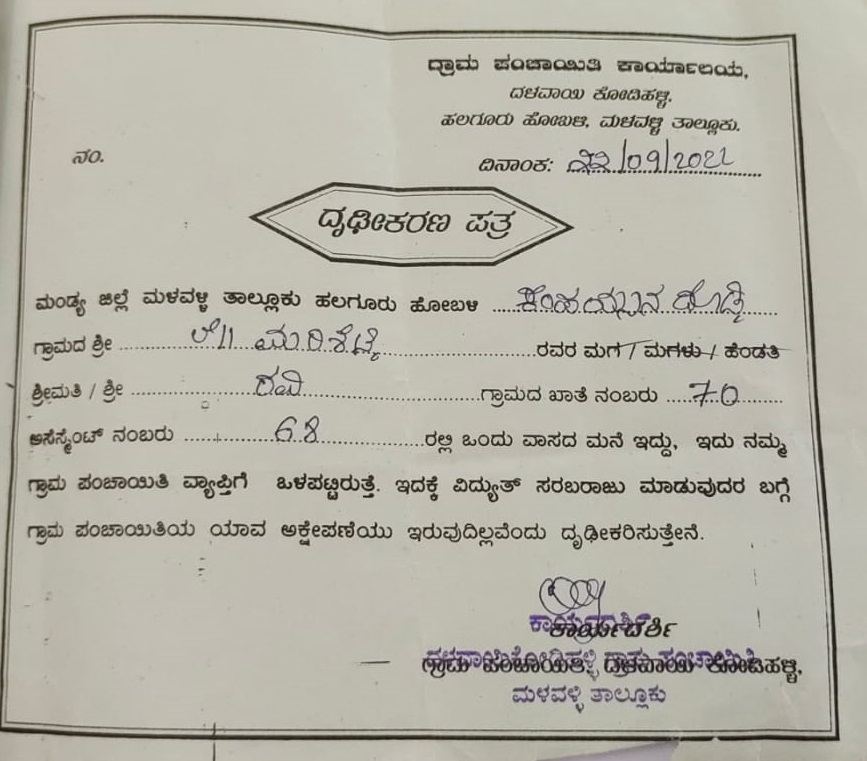 ಗ್ರಾಮ ಪಂಚಾಯಿತಿ ಕಾರ್ಯಾಲಯ,
ದಳವಾಯಿ ಕೋಡಿಹಳ್ಳಿ.
ಹಲಗೂರು ಹೋಬಳಿ, ಮಳವಳ್ಳಿ ತಾಲ್ಲೂಕು.
ನಂ. ದಿನಾಂಕ: 22/09/2021
ದೃಢೀಕರಣ ಪತ್ರ
ಮಂಡ್ಯ ಜಿಲ್ಲೆ ಮಳವಳ್ಳಿ ತಾಲ್ಲೂಕು ಹಲಗೂರು ಹೋಬಳಿ ದೊಡ್ಡಿ
ಗ್ರಾಮದ ಶ್ರೀ ಲೇ|| ಮರಿಶೆಟ್ಟಿ ರವರ ಮಗ / ಮಗಳು / ಹೆಂಡತಿ
ಶ್ರೀಮತಿ / ಶ್ರೀ ರವಿ ಗ್ರಾಮದ ಖಾತೆ ನಂಬರು 70
ಅಸೆಸ್ಮೆಂಟ್ ನಂಬರು 68 ರಲ್ಲಿ ಒಂದು ವಾಸದ ಮನೆ ಇದ್ದು, ಇದು ನಮ್ಮ
ಗ್ರಾಮ ಪಂಚಾಯಿತಿ ವ್ಯಾಪ್ತಿಗೆ ಒಳಪಟ್ಟಿರುತ್ತೆ. ಇದಕ್ಕೆ ವಿದ್ಯುತ್ ಸರಬರಾಜು ಮಾಡುವುದರ ಬಗ್ಗೆ
ಗ್ರಾಮ ಪಂಚಾಯಿತಿಯ ಯಾವ ಅಕ್ಷೇಪಣೆಯು ಇರುವುದಿಲ್ಲವೆಂದು ದೃಢೀಕರಿಸುತ್ತೇನೆ.
ಕಾರ್ಯದರ್ಶಿ
ಗ್ರಾಮ ಪಂಚಾಯಿತಿ, ದಳವಾಯಿ ಕೋಡಿಹಳ್ಳಿ.
ಮಳವಳ್ಳಿ ತಾಲ್ಲೂಕು